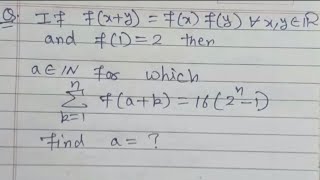 Q. If f(x+y) = f(x) f(y) ∀ x,y∈ℝ
and f(1) = 2 then
a∈ℕ for which
n
∑ f(a+k) = 16(2ⁿ-1)
k=1
find a = ?